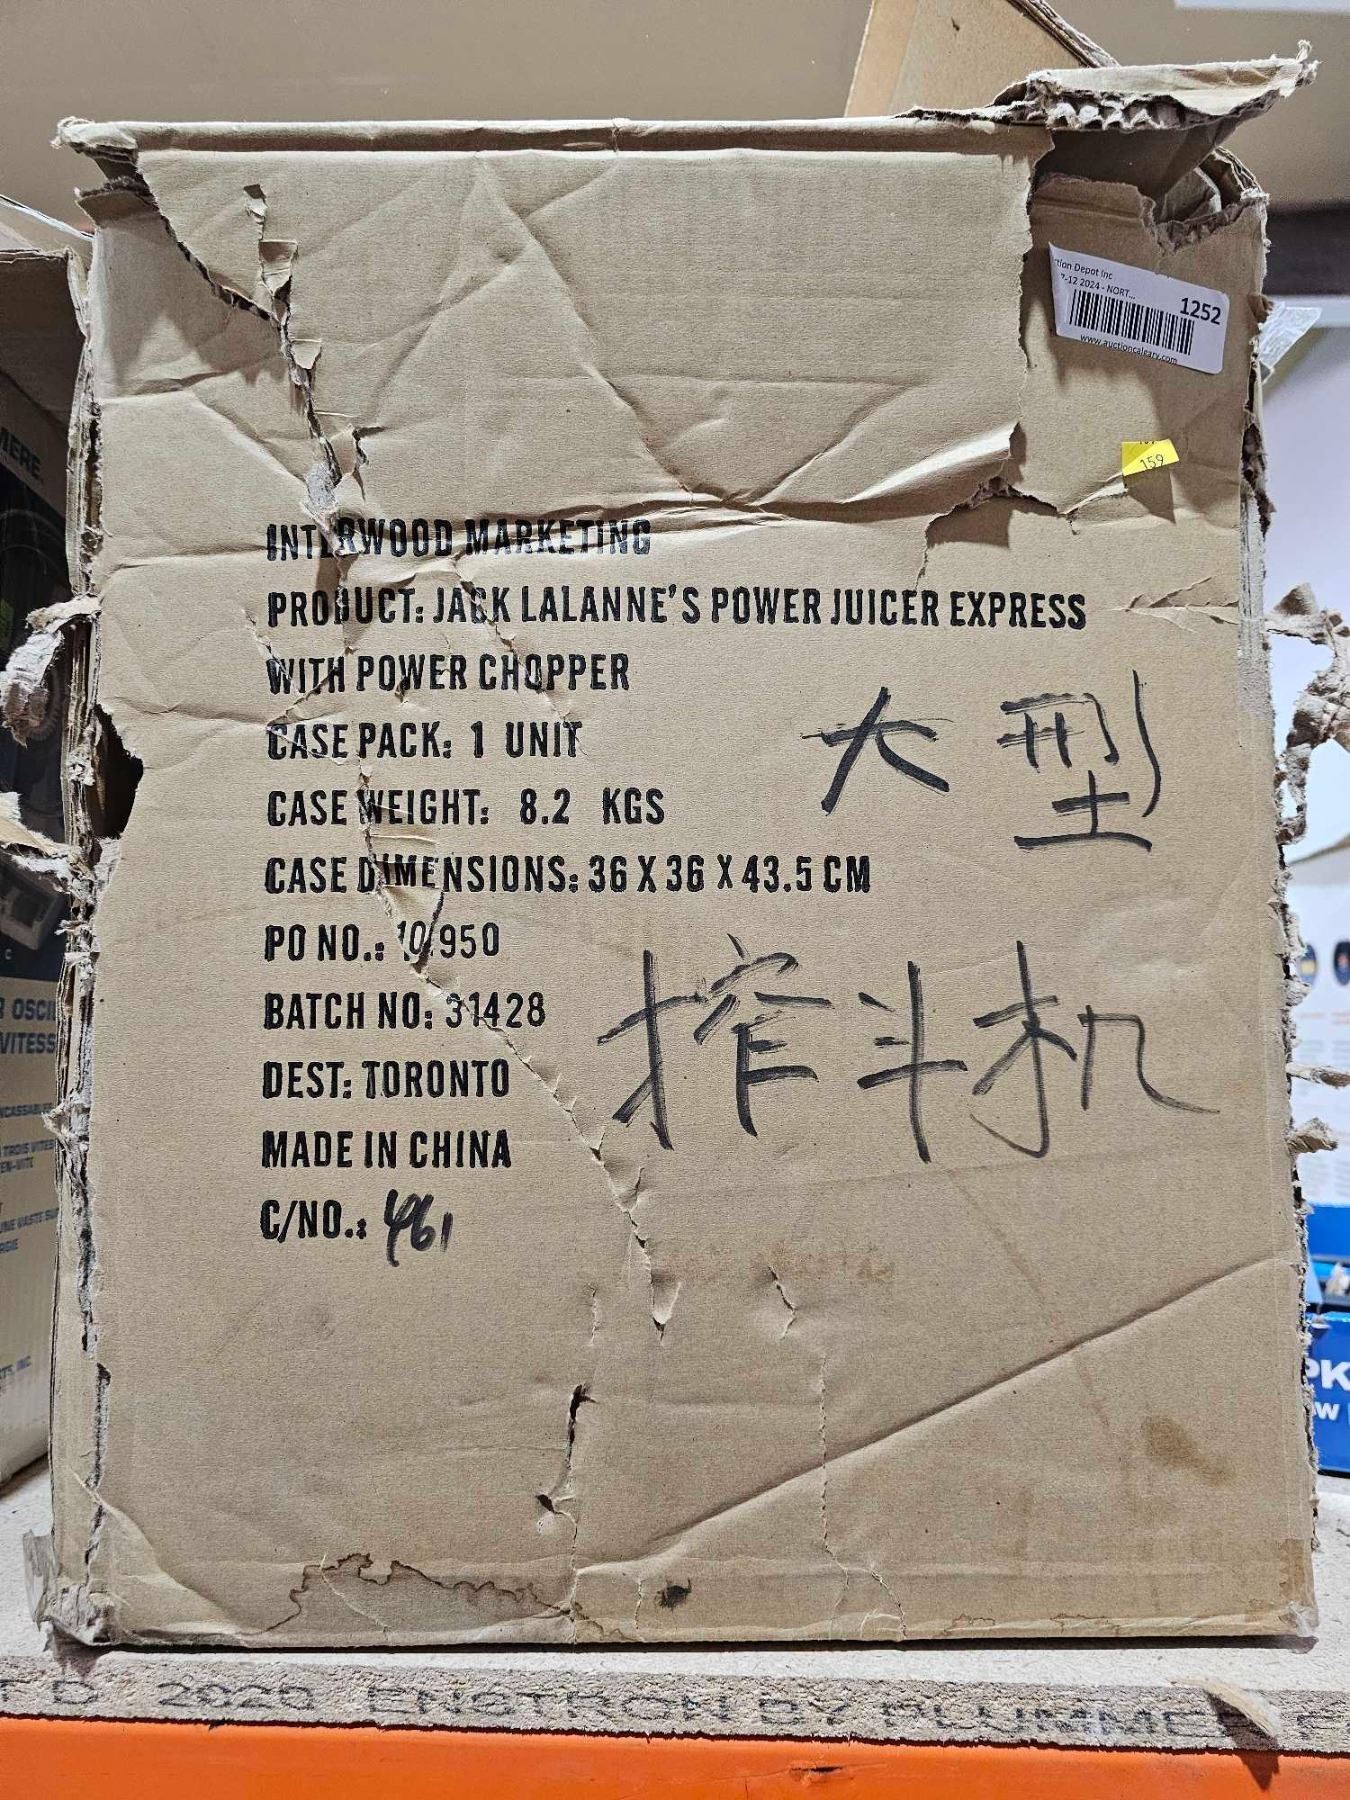 tion Depot Inc
7-12 2024 - NORT...
1252
www.auctioncalgary.com
159
INTERWOOD MARKETING
PRODUCT: JACK LALANNE'S POWER JUICER EXPRESS
WITH POWER CHOPPER
CASE PACK: 1 UNIT
CASE WEIGHT: 8.2 KGS
CASE DIMENSIONS: 36 X 36 X 43.5 CM
PO NO.: 10950
BATCH NO: 31428
DEST: TORONTO
MADE IN CHINA
C/NO.: 461
大型
榨汁机
MERE
R OSCIL
VITESS
PK
2020